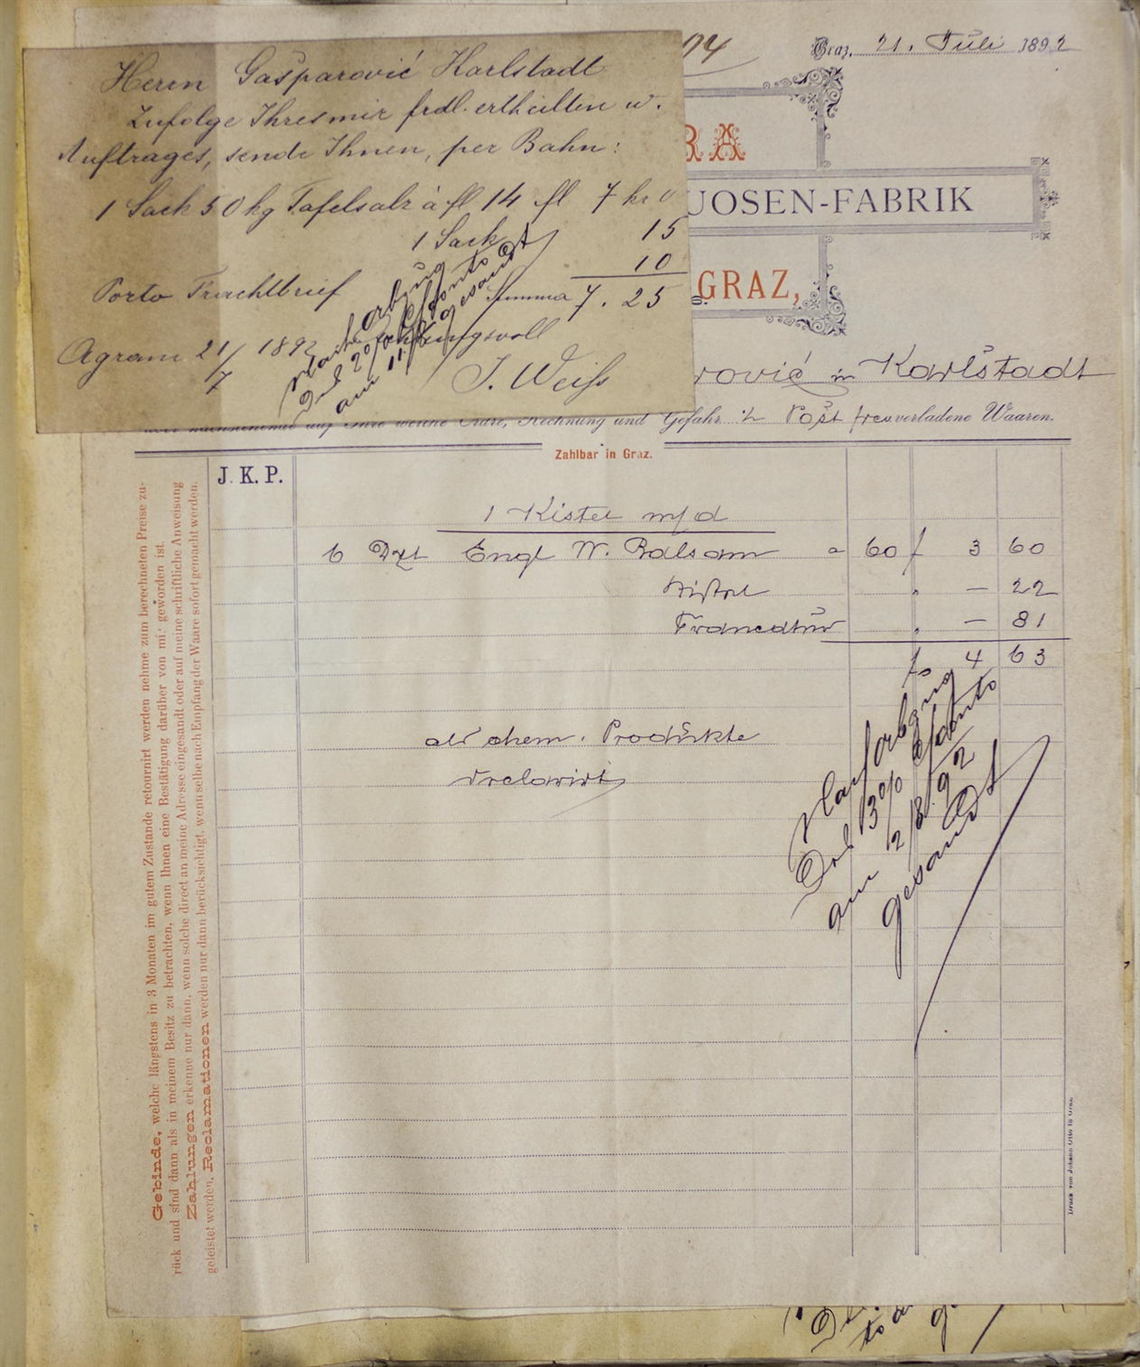 Herrn Gašparović Karlstadt
Zufolge Ihres mir frdl. ertheilten w.
Auftrages, sende Ihnen, per Bahn:
1 Sack 50 kg Tafelsalz à fl 14 fl 7 kr 0
1 Sack 15
Porto Frachtbrief 10
Summa 7.25
Agram 21/7 1892
Achtungsvoll
J. Weiss
Nach Abzug
20/0 Sconto
am 11/8 gesandt
94
Graz, 21. Juli 1892
RA
UOSEN-FABRIK
GRAZ,
rović in Karlstadt
auf Ihre werthe Ordre, Rechnung und Gefahr Post verladene Waaren.
Zahlbar in Graz.
J. K. P.
1 Kistel m/d
6 Dzt Engl W. Balsam a 60 f 3 60
Kistel " — 22
Francatur " — 81
fl 4 63
als chem. Produkte
declarirt
Nach Abzug
3% Sconto
am 2/8.92
gesandt
Gebinde, welche längstens in 3 Monaten im gutem Zustande retournirt werden nehme zum berechneten Preise zu-
rück und sind dann als in meinem Besitz zu betrachten, wenn Ihnen eine Bestätigung darüber von mir geworden ist.
Zahlungen erkenne nur dann, wenn solche direct an meine Adresse eingesandt oder auf meine schriftliche Anweisung
geleistet werden, Reclamationen werden nur dann berücksichtigt, wenn selbe nach Empfang der Waare sofort gemacht werden.
Druck von Johann Otto in Graz.